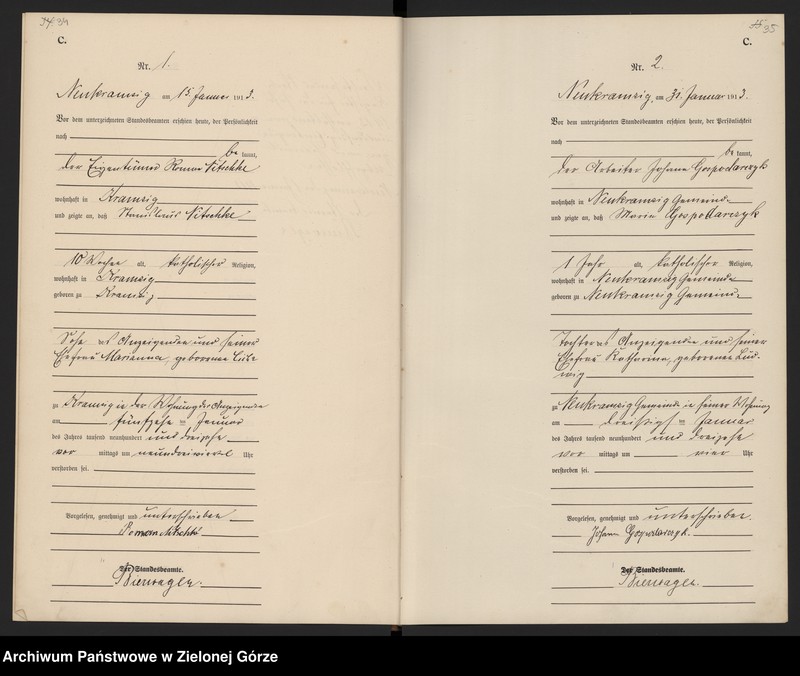 34
C.
Nr. 1.
Neukramzig am 15. Januar 1913.
Vor dem unterzeichneten Standesbeamten erschien heute, der Persönlichkeit
nach
be kannt,
der Eigentümer Roman Nitschke
wohnhaft in Kramzig
und zeigte an, daß Stanislaus Nitschke
10 Wochen alt, katholischer Religion,
wohnhaft in Kramzig
geboren zu Kramzig
Sohn des Anzeigenden und seiner
Ehefrau Marianna, geborenen
zu Kramzig in der Wohnung des Anzeigenden
am fünfzehn ten Januar
des Jahres tausend neunhundert und dreizehn
vor mittags um neundreiviertel Uhr
verstorben sei.
Vorgelesen, genehmigt und unterschrieben
Roman Nitschke
Der Standesbeamte.
Bienwagen.
35
C.
Nr. 2.
Neukramzig, am 31. Januar 1913.
Vor dem unterzeichneten Standesbeamten erschien heute, der Persönlichkeit
nach
be kannt,
der Arbeiter Johann Gospodarczyk
wohnhaft in Neukramzig Gemeinde
und zeigte an, daß Maria Gospodarczyk
1 Jahr alt, katholischer Religion,
wohnhaft in Neukramzig Gemeinde
geboren zu Neukramzig Gemeinde
Tochter des Anzeigenden und seiner
Ehefrau Katharina, geborenen Lud-
wig
zu Neukramzig Gemeinde in seiner Wohnung
am dreißigsten Januar
des Jahres tausend neunhundert und dreizehn
vor mittags um vier Uhr
verstorben sei.
Vorgelesen, genehmigt und unterschrieben.
Johann Gospodarczyk.
Der Standesbeamte.
Bienwagen.
Archiwum Państwowe w Zielonej Górze